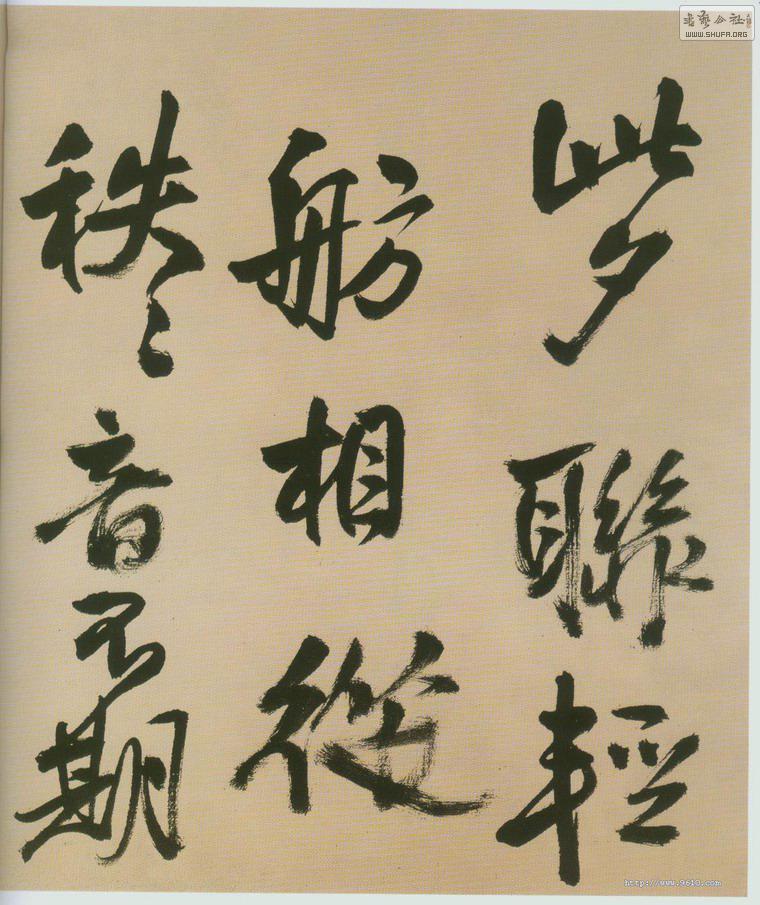 此夕聯輕
舫相從
秩々音不期
書藝公社
WWW.SHUFA.ORG
http://www.9610.com